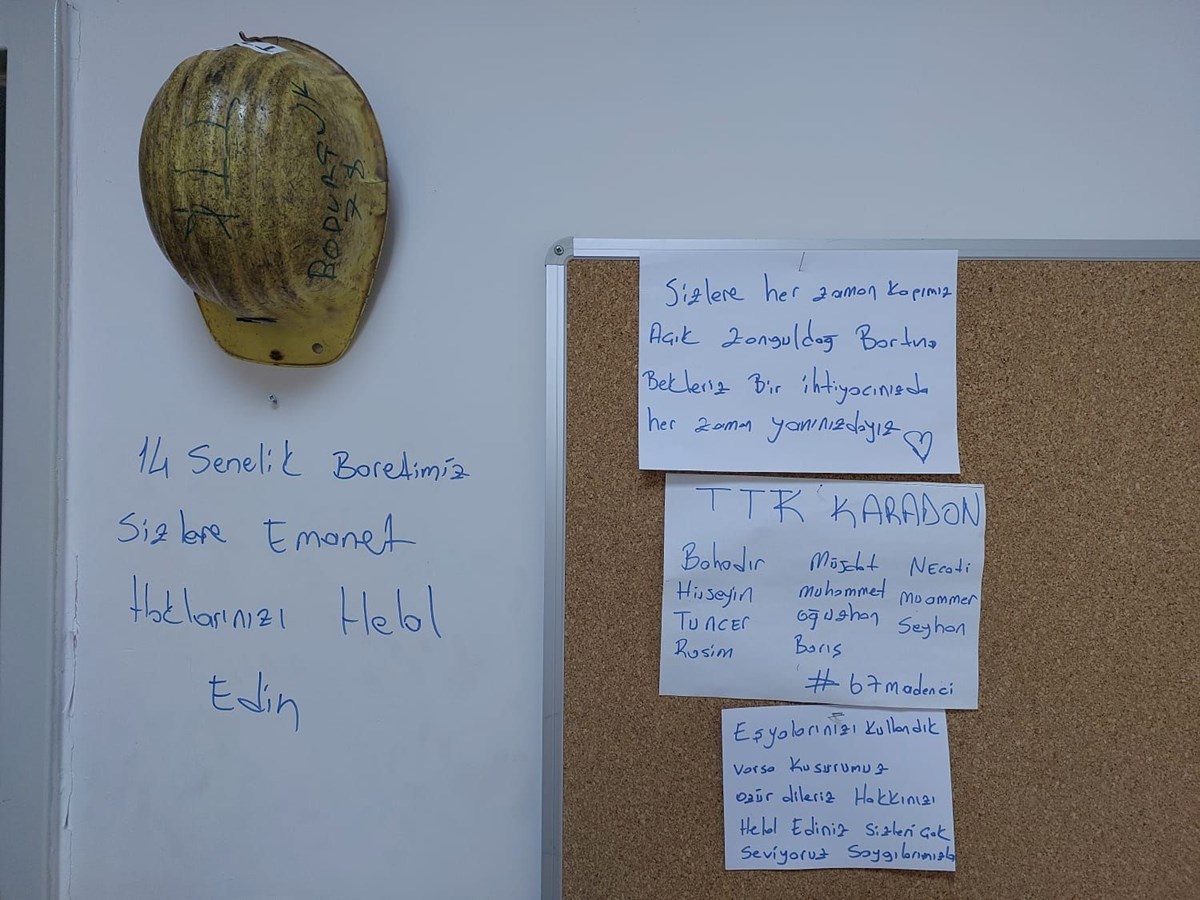 TTK
BODURSUK
78
14 Senelik Boretimiz
Sizlere Emanet
Haklarınızı Helal
Edin
Sizlere her zaman kapımız
Açık Zonguldağ Bartına
Bekleriz Bir ihtiyacınızda
her zaman yanınızdayız
TTK KARADON
Bahadır Müşfat Necati
Hüseyin Muhammet Muammer
TUNCER Oğuzhan Seyhan
Rasim Barış
#67madenci
Eşyalarınızı Kullandık
varsa Kusurumuz
özür dileriz Hakkınızı
Helal Ediniz Sizleri Çok
Seviyoruz Saygılarımızla